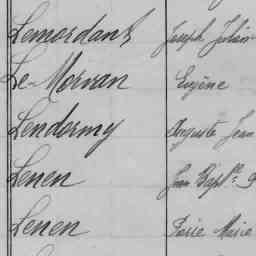 Lemordant Joseph Julien
Le Morvan Eugène
Lendormy Auguste Jean
Lenen Jean Baptte
Lenen Pierre Marie